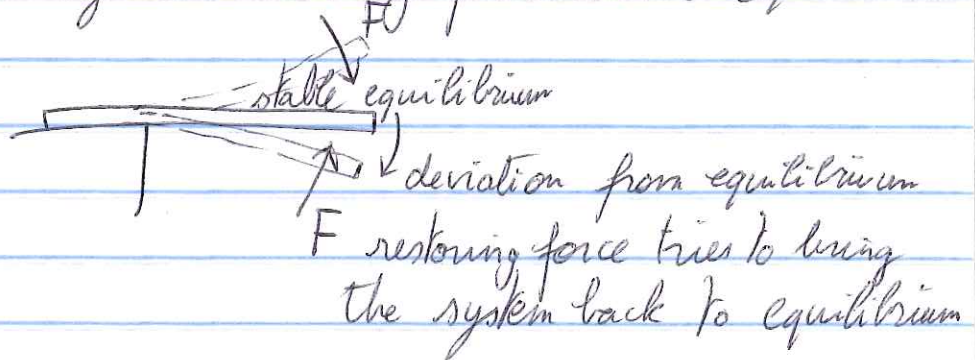 F
stable equilibrium
deviation from equilibrium
F restoring force tries to bring
the system back to equilibrium